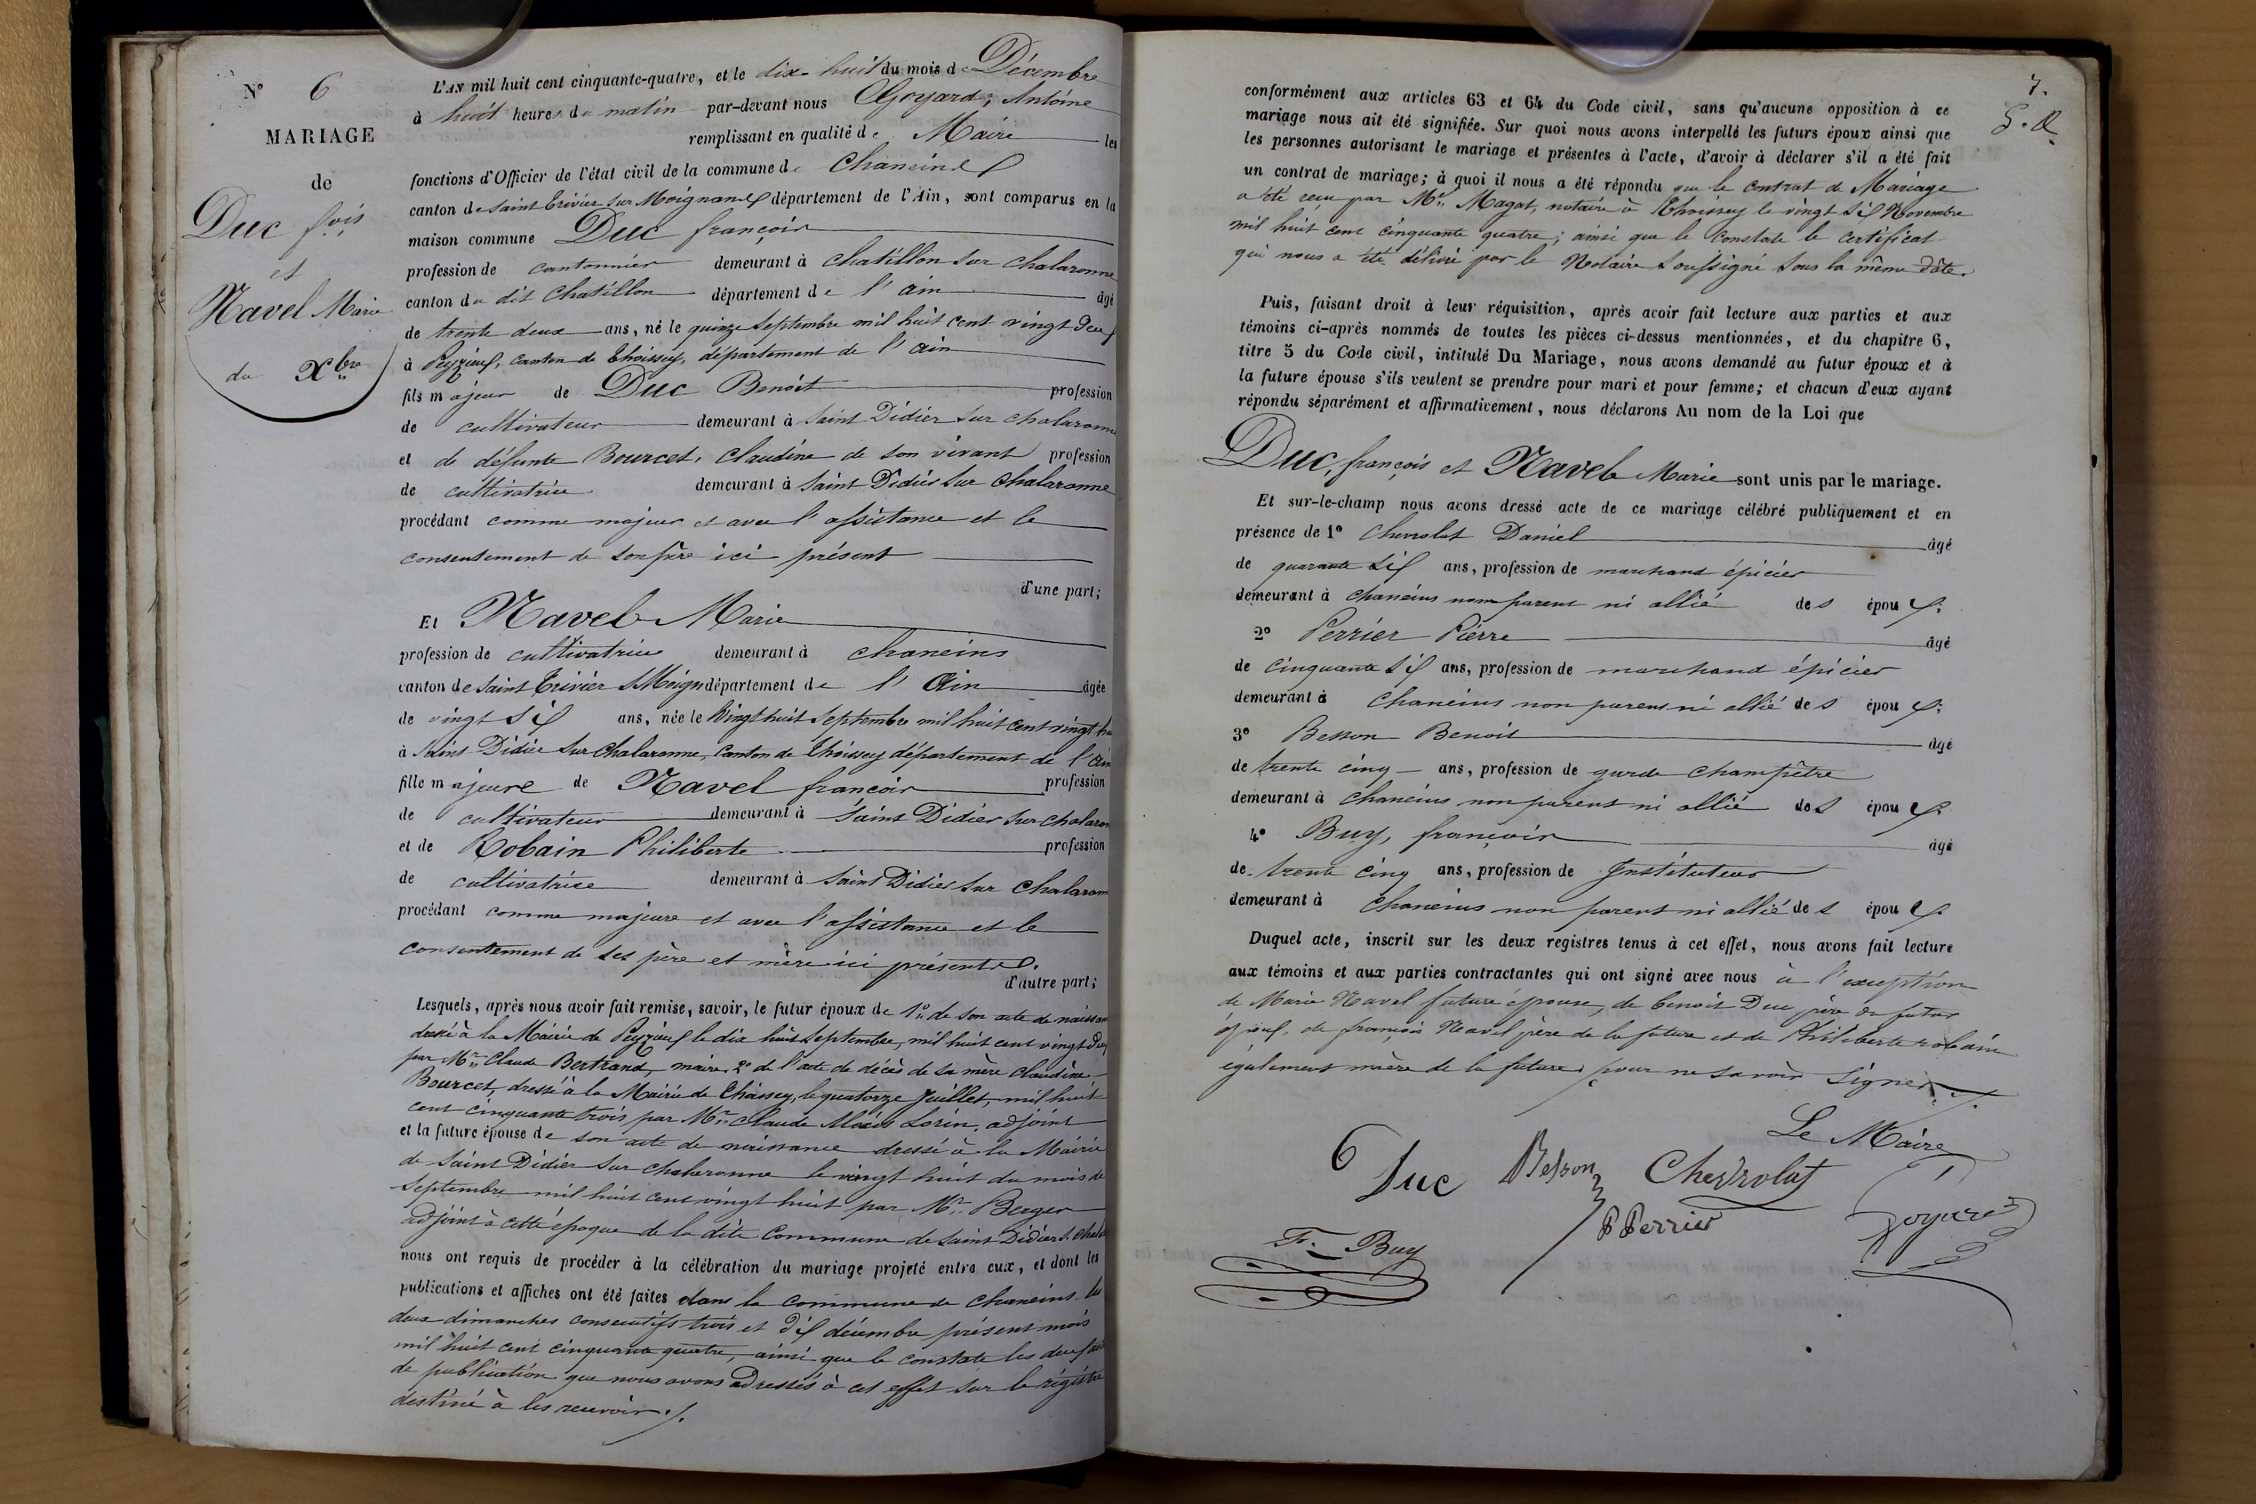 N° 6
MARIAGE
de
Duc fois
et
Navel Marie
du Xbre
L'AN mil huit cent cinquante-quatre, et le dix-huit du mois de Décembre
à huit heures du matin par-devant nous Goyard, Antoine
remplissant en qualité de Maire les
fonctions d'Officier de l'état civil de la commune de Chaneins
canton de Saint Trivier sur Moignans département de l'Ain, sont comparus en la
maison commune Duc françois
profession de cantonnier demeurant à Chatillon sur Chalaronne
canton du dit Chatillon département de l'Ain âgé
de trente deux ans, né le quinze Septembre mil huit cent vingt deux
à Peyzieux, canton de Thoissey, département de l'Ain
fils majeur de Duc Benoit profession
de cultivateur demeurant à Saint Didier sur Chalaronne
et de défunte Bourcet, Claudine de son vivant profession
de cultivatrice demeurant à Saint Didier sur Chalaronne
procédant comme majeur et avec l'assistance et le
consentement de son père ici présent
d'une part;
Et Navel Marie
profession de cultivatrice demeurant à Chaneins
canton de Saint Trivier s Moign département de l'Ain âgée
de vingt six ans, née le vingt huit Septembre mil huit cent vingt hui
à Saint Didier sur Chalaronne, canton de Thoissey département de l'Ain
fille majeure de Navel françois profession
de cultivateur demeurant à Saint Didier sur Chalaron
et de Robain Philiberte profession
de cultivatrice demeurant à Saint Didier sur Chalaron
procédant comme majeure et avec l'assistance et le
consentement de ses père et mère ici présents.
d'autre part;
Lesquels, après nous avoir fait remise, savoir, le futur époux de 1° de son acte de naissan
dressé à la Mairie de Peyzieux le dix huit Septembre, mil huit cent vingt deux
par Mr Claude Bertrand, maire, 2° de l'acte de décès de sa mère Claudine
Bourcet, dressé à la Mairie de Thoissey, le quatorze Juillet, mil huit
cent cinquante trois par Mr Claude Alexis Lorin, adjoint
et la future épouse de son acte de naissance dressé à la Mairie
de Saint Didier sur Chalaronne le vingt huit du mois de
Septembre mil huit cent vingt huit par Mr Berger
adjoint à cette époque de la dite Commune de Saint Didier s. Chal
nous ont requis de procéder à la célébration du mariage projeté entre eux, et dont les
publications et affiches ont été faites dans la commune de Chaneins les
deux dimanches consecutifs trois et dix décembre présent mois
mil huit cent cinquante quatre, ainsi que le constate les deux
de publication que nous avons adressés à cet effet sur le régistre
destiné à les recevoir ./.
7.
conformément aux articles 63 et 64 du Code civil, sans qu'aucune opposition à ce
mariage nous ait été signifiée. Sur quoi nous avons interpellé les futurs époux ainsi que
les personnes autorisant le mariage et présentes à l'acte, d'avoir à déclarer s'il a été fait
un contrat de mariage; à quoi il nous a été répondu que le contrat de Mariage
a été recu par Me Magat, notaire à Thoissey le vingt six Novembre
mil huit cent cinquante quatre; ainsi que le constate le certificat
qui nous a été délivré par le Notaire Soussigné sous la même date.
Puis, faisant droit à leur réquisition, après avoir fait lecture aux parties et aux
témoins ci-après nommés de toutes les pièces ci-dessus mentionnées, et du chapitre 6,
titre 5 du Code civil, intitulé Du Mariage, nous avons demandé au futur époux et à
la future épouse s'ils veulent se prendre pour mari et pour femme; et chacun d'eux ayant
répondu séparément et affirmativement, nous déclarons Au nom de la Loi que
Duc, françois et Navel Marie sont unis par le mariage.
Et sur-le-champ nous avons dressé acte de ce mariage célébré publiquement et en
présence de 1° Chevrolat Daniel âgé
de quarante six ans, profession de marchand épicier
demeurant à Chaneins non parent ni allié des époux.
2° Perrier Pierre âgé
de cinquante six ans, profession de marchand épicier
demeurant à Chaneins non parent ni allié des époux.
3° Besson Benoit âgé
de trente cinq ans, profession de garde champêtre
demeurant à Chaneins non parent ni allié des époux.
4° Buy, françois âgé
de trente cinq ans, profession de Instituteur
demeurant à Chaneins non parent ni allié des époux.
Duquel acte, inscrit sur les deux registres tenus à cet effet, nous avons fait lecture
aux témoins et aux parties contractantes qui ont signé avec nous à l'exception
de Marie Navel future épouse, de benoit Duc père du futur
époux, de françois Navel père de la future et de Philiberte robain
également mère de la future, pour ne savoir signer ./.
Le Maire
6 Duc Besson Chevrolat
P Perrier Goyard
F. Buy